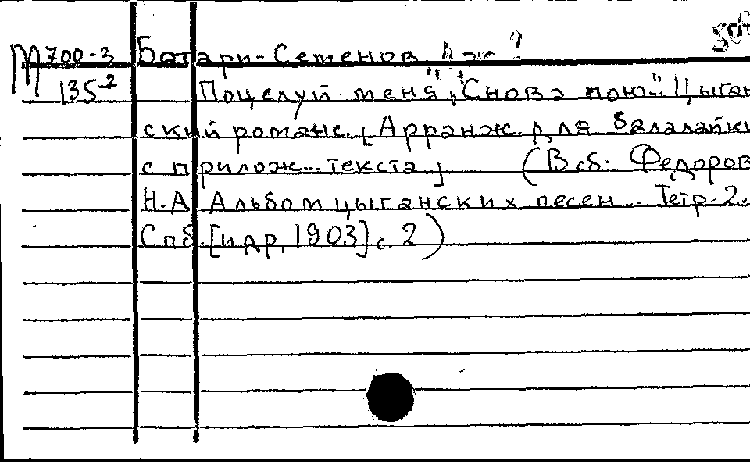 М 700-3 Батари-Семенов Аж?
135-2 Поцелуй меня", "Снова пою" Цыган
ский романс [Арранж для балалайки
с прилож. текста] (В сб. Федоров
Н.А Альбом цыганских песен. Тетр. 2.
Спб. [ц др, 1903] с. 2)